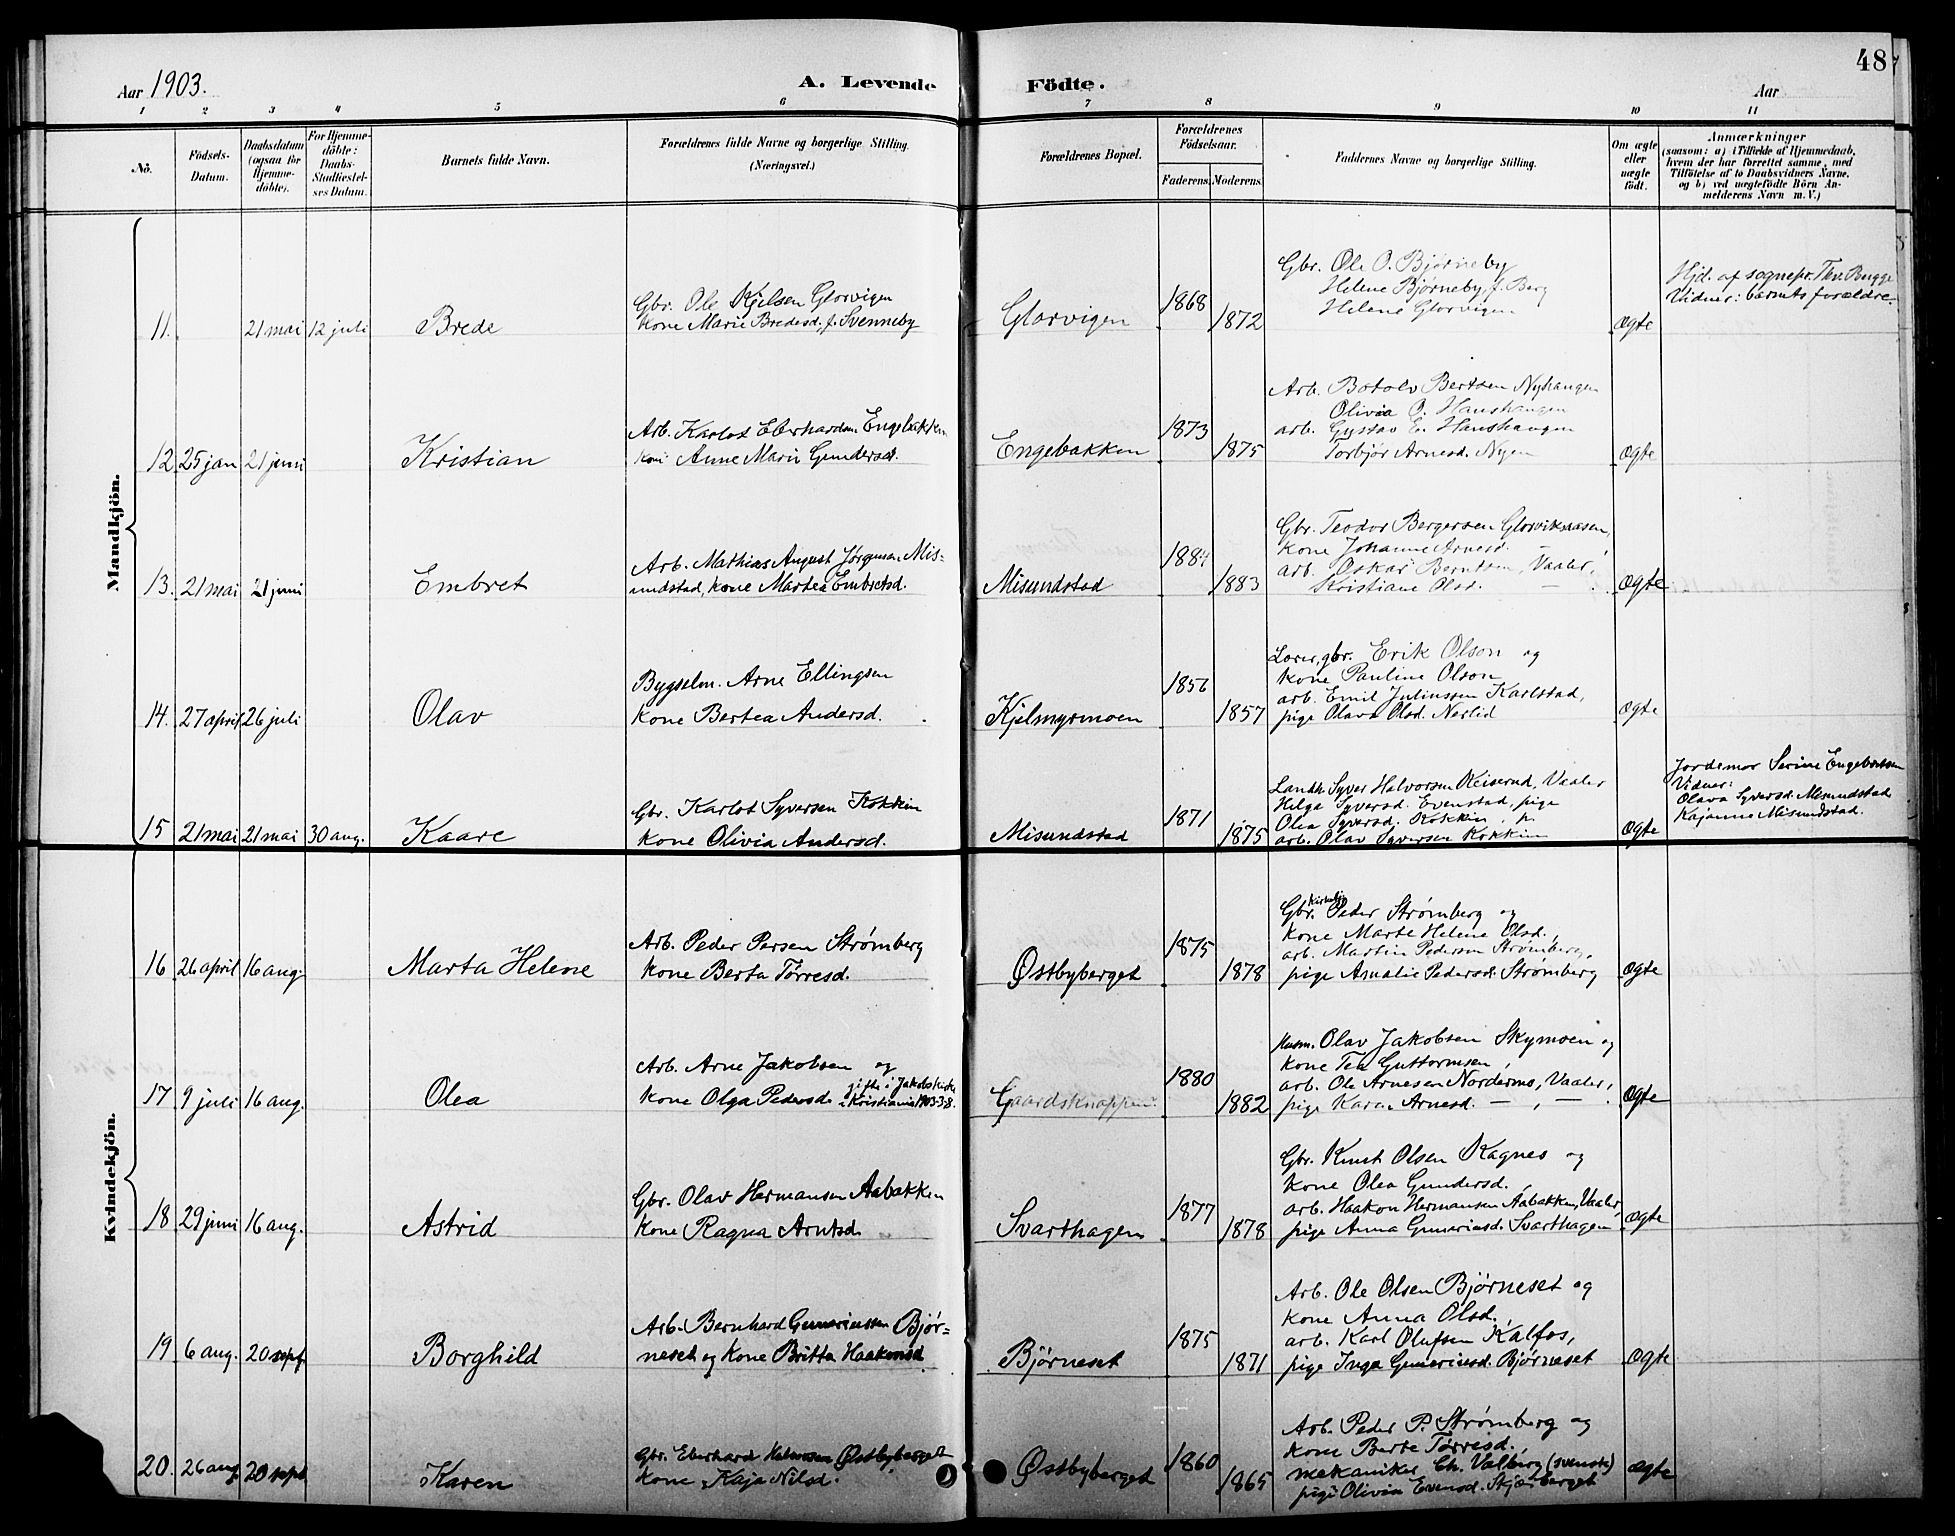 Aar 1903.
A. Levende Födte.
48
Aar
1 2 3 4 5 6 7 8 9 10 11
No.
Födsels-
Datum.
Daabsdatum
(ogsaa for
Hjemme-
döbte).
For Hjemme-
döbte:
Daabs-
Stadfæstel-
ses Datum.
Barnets fulde Navn.
Forældrenes fulde Navne og borgerlige Stilling.
(Næringsvei.)
Forældrenes Bopæl.
Forældrenes
Födselsaar.
Faderens. Moderens.
Faddernes Navne og borgerlige Stilling.
Om ægte
eller
uægte
födt.
Anmærkninger
(saasom: a) i Tilfælde af Hjemmedaab,
hvem der har forrettet samme, med
Tilföielse af to Daabsvidners Navne,
og b) ved uægtefödte Börn An-
melderens Navn m. V.)
Mandkjön.
11. 21 mai 12 juli Brede
Gbr. Ole Kjelsen Glorvigen
kone Marie Bredesd. f. Svenneby
Glorvigen 1868 1872
Gbr. Ole O. Bjørneby
Helene Bjørneby f. Berg
Helene Glorvigen
ægte
Hjd. af sognepr. Thv. Bugge
Vidner: barnets forældre.
12 25 jan 21 juni Kristian
Arb. Karlot Eberhardsen Engebakken
kone Anne Marie Gundersd.
Engebakken 1873 1875
Arb. Botolv Bertsen Nyhangen
Olivia O. Hanshaugen
arb. Gustav E. Hanshaugen
Torbjør Arnesd. Nyen
ægte
13. 21 mai 21 juni Embret
Arb. Mathias August Jørgensen Mis-
undstad, kone Martea Embretsd.
Misundstad 1884 1883
Gbr. Teodor Bergersen Glorviksaasen,
kone Johanne Arnesd. —
arb. Oskar Berntsen, Vaaler,
Kristiane Olsd. — .
ægte
14. 27 april 26 juli Olav
Bygselm. Arne Ellingsen
kone Bertea Andersd.
Kjelmyrmoen 1856 1857
gbr. Erik Olson og
kone Pauline Olson
arb. Emil Juliussen Karlstad,
pige Olava Olsd. Nerlid
ægte
15 21 mai 21 mai 30 aug. Kaare
Gbr. Karlot Syversen Kokkin
kone Olivia Andersd.
Misundstad 1871 1875
Landh. Syver Halvorsen Reiserud, Vaaler
Helga Syversd. Evenstad, pige
Olea Syversd. Kokkin, p.
arb. Olav Syversen Kokkin
ægte
Jordemor Serine Engebretsen
Vidner:
Olava Syversd. Misundstad
Kajanna Misundstad.
Kvindekjön.
16 26 april 16 aug. Marta Helene
Arb. Peder Persen Strømberg
kone Berta Tørresd.
Østbyberget 1875 1878
Gbr. Peder Strømberg og
kone Marte Helene Olsd.,
arb. Martin Pedersen Strømberg,
pige Amalie Pedersd. Strømberg
ægte
17 9 juli 16 aug. Olea
Arb. Arne Jakobsen og
kone Olga Pedersd. gifte i Jakobs kirke
i Kristiania 1903-3-8.
Gaardsknappen. 1880 1882
Husm. Olav Jakobsen Skymoen og
kone Tea Guttormsen,
arb. Ole Arnesen Nordermo, Vaaler,
pige Karen Arnesd. — , — .
ægte
18 29 juni 16 aug. Astrid
Gbr. Olav Hermansen Aabakken
kone Ragna Arntsd.
Svarthagen 1877 1878
Gbr. Knut Olsen Kagnes og
kone Olea Gundersd.,
arb. Haakon Hermansen Aabakken, Vaaler,
pige Anna Gunariusd. Svarthagen
ægte
19 6 aug. 20 sept. Borghild
Arb. Bernhard Gunariussen Bjør-
neset og kone Britta Haakonsd
Bjørneset 1875 1871
Arb. Ole Olsen Bjørneset og
kone Anna Olsd.,
arb. Karl Olufsen Kalfos,
pige Inga Gunariusd. Bjørneset
ægte
20. 26 aug. 20 sept Karen
Gbr. Eberhard Halvorsen Østbyberget
kone Kaja Nilsd.
Østbyberget 1860 1865
Arb. Peder P. Strømberg og
kone Berte Tørresd.,
mekaniker Ch. Valberg (svensk)
pige Olivia Evensd. Skjærberget
ægte